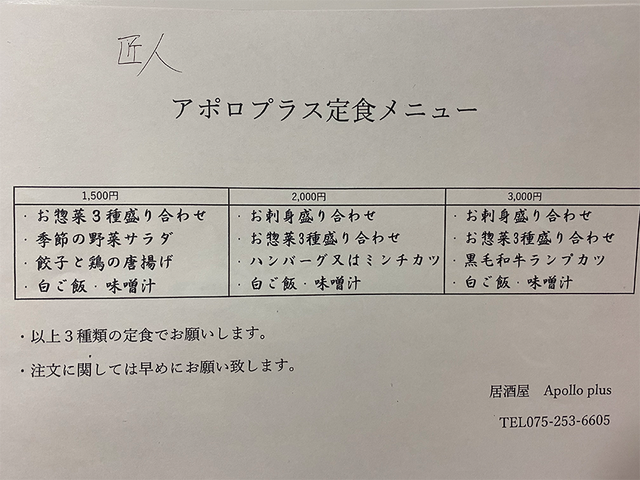 匠人
アポロプラス定食メニュー
1,500円
・お惣菜３種盛り合わせ
・季節の野菜サラダ
・餃子と鶏の唐揚げ
・白ご飯・味噌汁
2,000円
・お刺身盛り合わせ
・お惣菜3種盛り合わせ
・ハンバーグ又はミンチカツ
・白ご飯・味噌汁
3,000円
・お刺身盛り合わせ
・お惣菜3種盛り合わせ
・黒毛和牛ランプカツ
・白ご飯・味噌汁
・以上３種類の定食でお願いします。
・注文に関しては早めにお願い致します。
居酒屋　Apollo plus
TEL075-253-6605